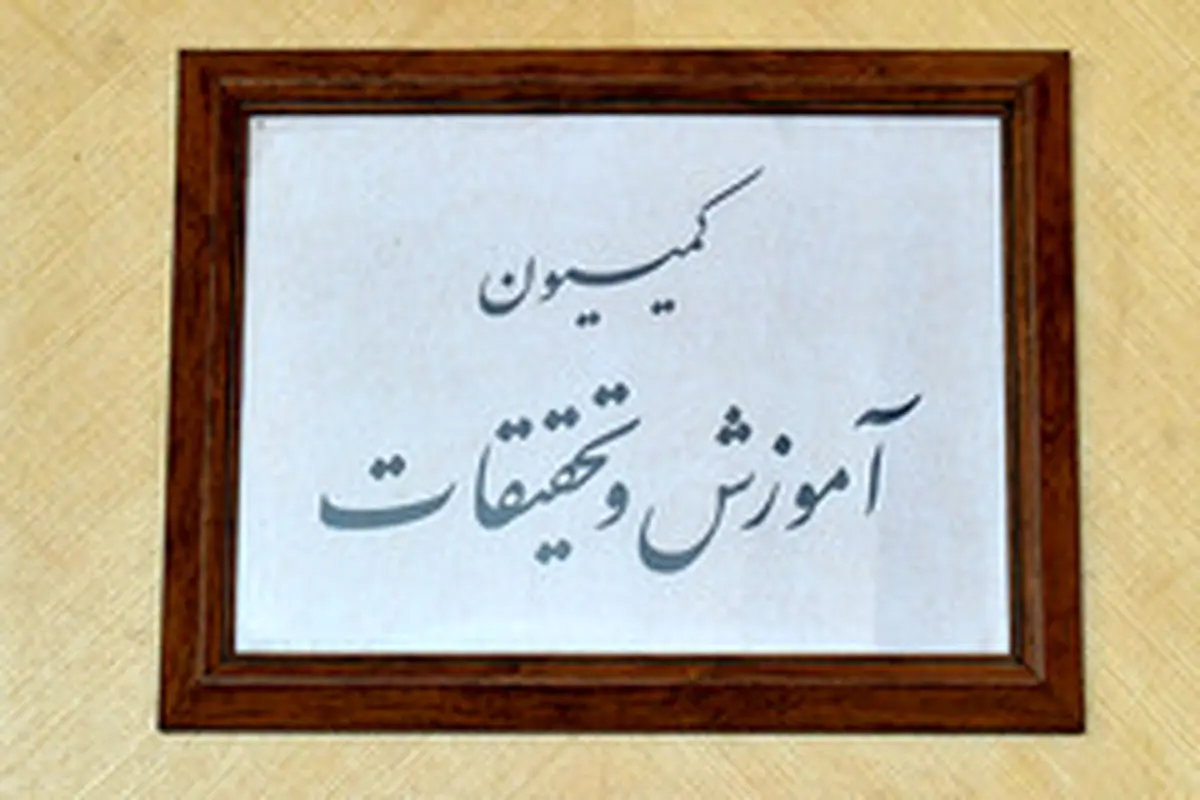 کمیسیون
آموزش و تحقیقات